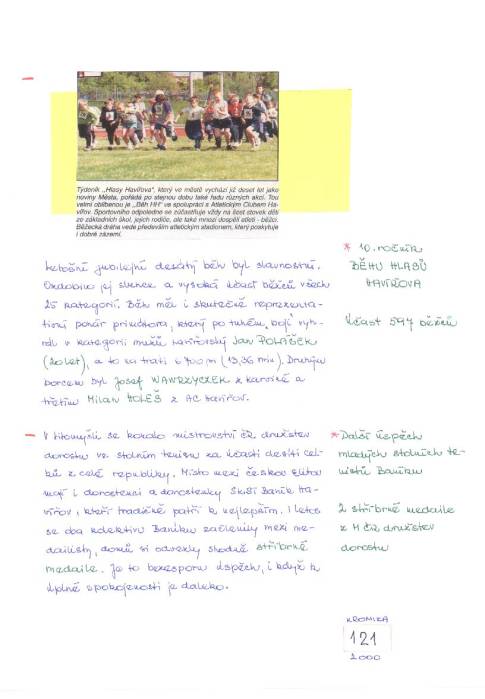 Týdeník „Hlasy Havířova", který ve městě vychází již deset let jako
noviny Města, pořádá po stejnou dobu také řadu různých akcí. Tou
velmi oblíbenou je „Běh HH" ve spolupráci s Atletickým Clubem Ha-
vířov. Sportovního odpoledne se zúčastňuje vždy na šest stovek dětí
ze základních škol, jejich rodiče, ale také mnozí dospělí atleti - běžci.
Běžecká dráha vede především atletickým stadionem, který poskytuje
i dobré zázemí.
* 10. ročník
BĚHU HLASŮ
HAVÍŘOVA
Účast 597 běžců
Letošní jubilejní desátý běh byl slavnostní.
Ozdobilo jej slunce a vysoká účast běžců všech
25 kategorií. Běh měl i skutečně reprezenta-
tivní pohár primátora, který po tuhém „boji" vyh-
rál v kategorii mužů havířovský Jan POLÁŠEK
(20 let), a to na trati 6 400 m (19,36 min). Druhým
borcem byl Josef WAWRZYCZEK z Karviné a
třetím Milan HOLEŠ z AC Havířov.
- V Litomyšli se konalo mistrovství ČR družstev
dorostu ve stolním tenisu za účasti desíti cel-
ků z celé republiky. Místo mezi českou elitou
mají i dorostenci a dorostenky SKST Baník Ha-
vířov, kteří tradičně patří k nejlepším. I letos
se oba kolektivy Baníku začlenily mezi me-
dailisty, domů si odvezly shodně stříbrné
medaile. Je to bezesporu úspěch, i když k
úplné spokojenosti je daleko.
* Další úspěch
mladých stolních te-
nistů Baníku
2 stříbrné medaile
z M ČR družstev
dorostu
KRONIKA
121
2000